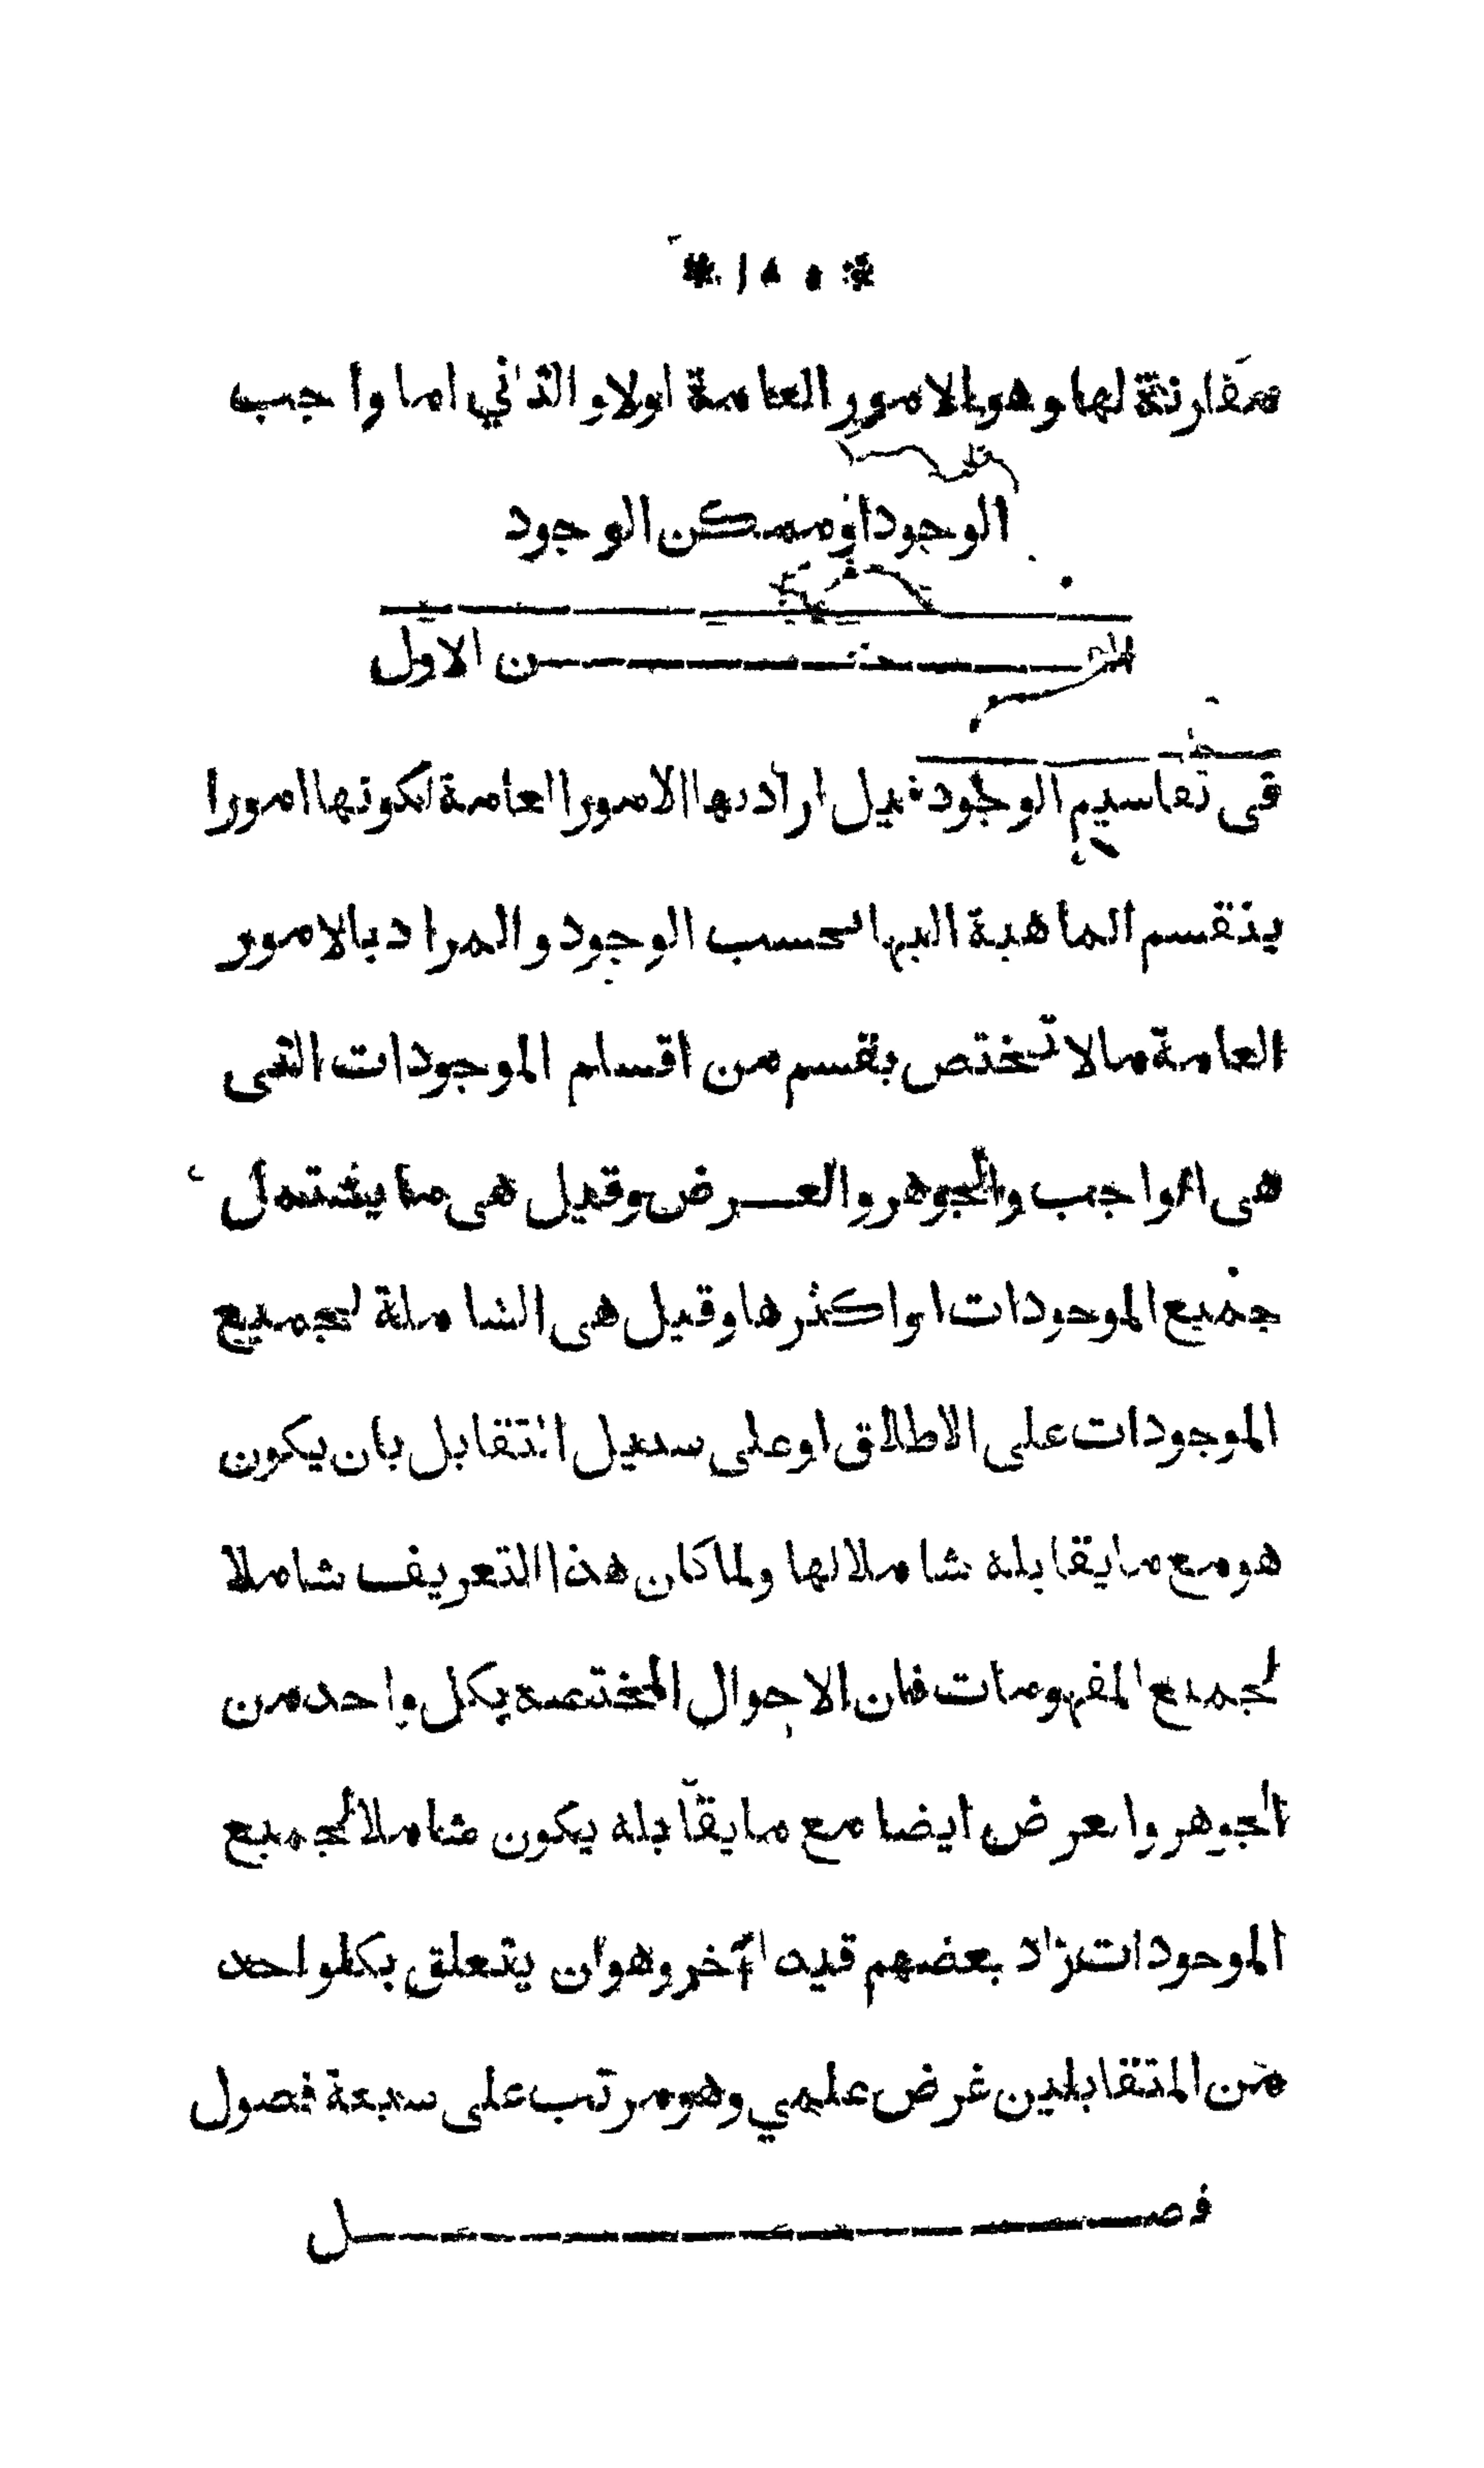 * ١٥٠ *
مقارنة لها وهو الامور العامة اولا والثاني اما واجب
الوجود او ممكن الوجود
الفن الاول
فى تقاسيم الوجود قيل اراد بها الامور العامة لكونها امورا
ينقسم الماهية اليها بحسب الوجود والمراد بالامور
العامة مالا تختص بقسم من اقسام الموجودات التى
هى الواجب والجوهر والعرض وقيل هى ما يشتمل
جميع الموجودات او اكثرها وقيل هى الشاملة لجميع
الموجودات على الاطلاق او على سبيل التقابل بان يكون
هو مع ما يقابله شاملا لها ولما كان هذا التعريف شاملا
لجميع المفهومات فان الاحوال المختصة بكل واحد من
الجوهر والعرض ايضا مع ما يقابله يكون شاملا لجميع
الموجودات زاد بعضهم قيدا آخر وهو ان يتعلق بكل واحد
من المتقابلين غرض علمي وهو مرتب على سبعة فصول
فصل